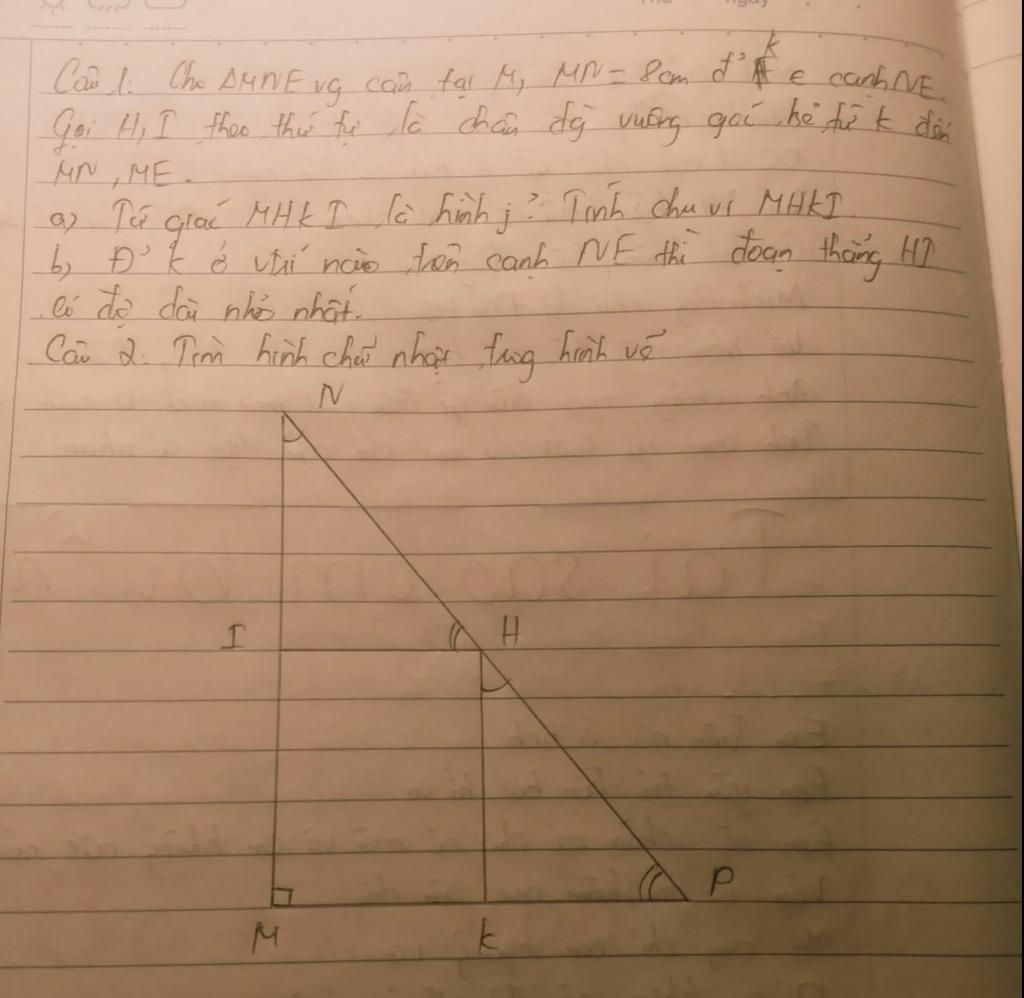 Câu 1. Cho ΔMNE vg cân tại M, MN = 8cm đ' k ∈ cạnh NE.
Gọi H, I theo thứ tự là chân đg vuông góc kẻ từ k đến
MN, ME.
a) Tứ giác MHkI là hình j? Tính chu vi MHkI
b) Đ' k ở vtrí nào trên cạnh NE thì đoạn thẳng HI
có độ dài nhỏ nhất.
Câu 2. Tìm hình chữ nhật trog hình vẽ
N
I H
P
M k